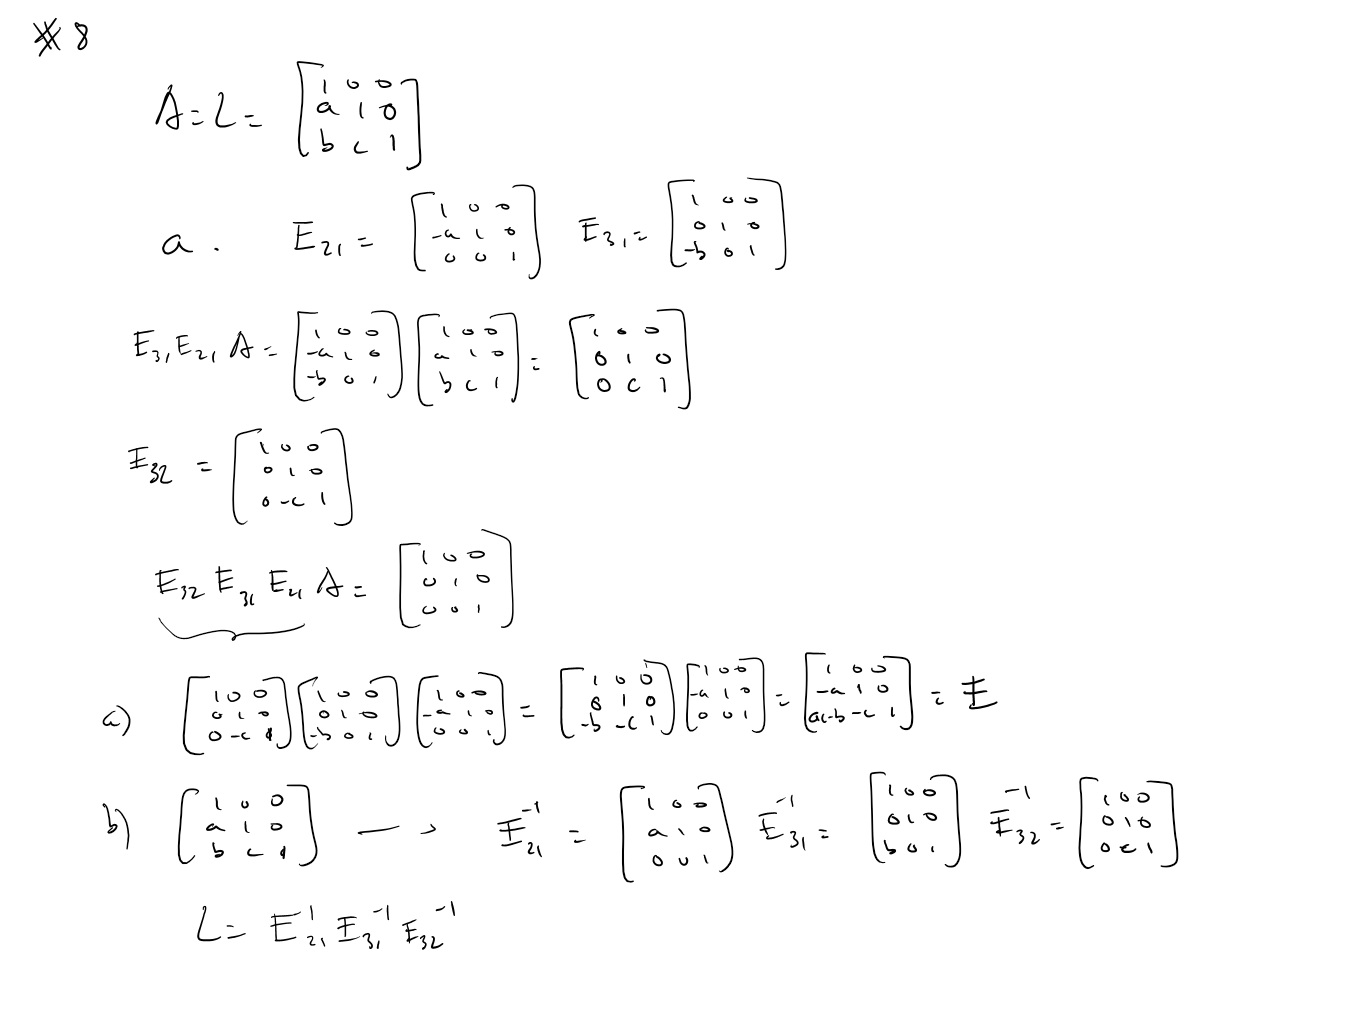 # 8
A = L = [1 0 0; a 1 0; b c 1]
a. E₂₁ = [1 0 0; -a 1 0; 0 0 1] E₃₁ = [1 0 0; 0 1 0; -b 0 1]
E₃₁ E₂₁ A = [1 0 0; -a 1 0; -b 0 1] [1 0 0; a 1 0; b c 1] = [1 0 0; 0 1 0; 0 c 1]
E₃₂ = [1 0 0; 0 1 0; 0 -c 1]
E₃₂ E₃₁ E₂₁ A = [1 0 0; 0 1 0; 0 0 1]
a) [1 0 0; 0 1 0; 0 -c 1] [1 0 0; 0 1 0; -b 0 1] [1 0 0; -a 1 0; 0 0 1] = [1 0 0; 0 1 0; -b -c 1] [1 0 0; -a 1 0; 0 0 1] = [1 0 0; -a 1 0; ac-b -c 1] = E
b) [1 0 0; a 1 0; b c 1] → E₂₁⁻¹ = [1 0 0; a 1 0; 0 0 1] E₃₁⁻¹ = [1 0 0; 0 1 0; b 0 1] E₃₂⁻¹ = [1 0 0; 0 1 0; 0 c 1]
L = E₂₁⁻¹ E₃₁⁻¹ E₃₂⁻¹